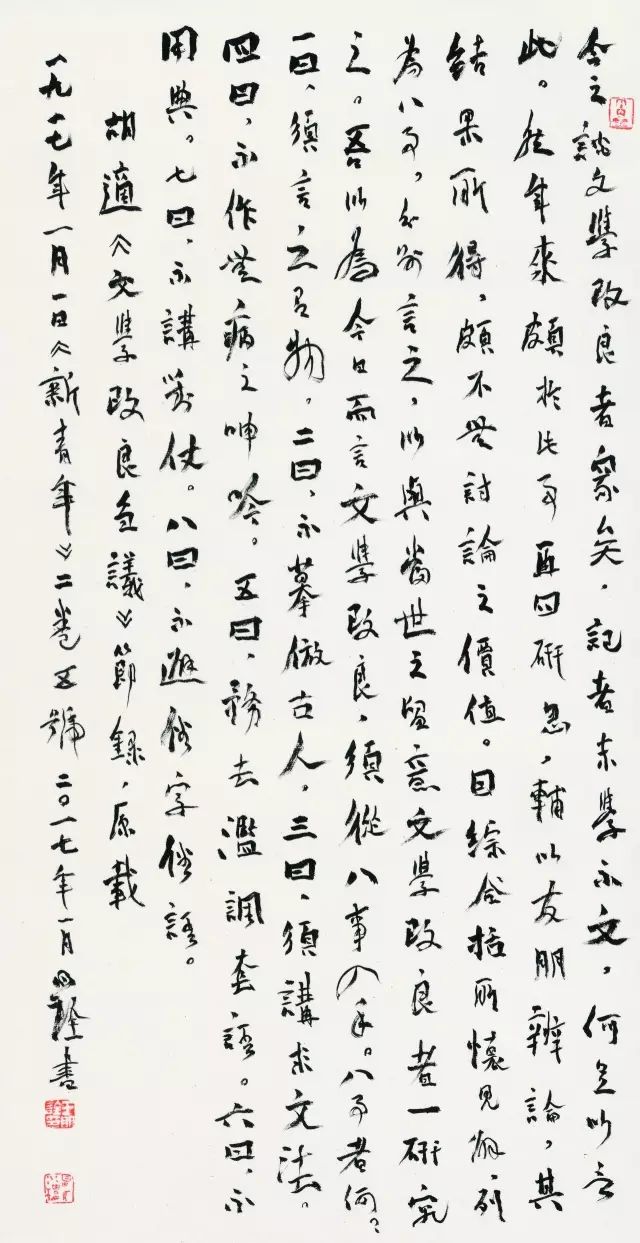 今之談文學改良者衆矣，記者未學不文，何足以言
此。然年來頗於此事再四研思，輔以友朋辨論，其
結果所得，頗不無討論之價值。因綜合括所懷見解，列
為八事，分別言之，以與當世之留意文學改良者一研究
之。吾以為今日而言文學改良，須從八事入手。八事者何？
一曰，須言之有物。二曰，不摹倣古人，三曰，須講求文法。
四曰，不作無病之呻吟。五曰，務去濫調套語。六曰，不
用典。七曰，不講對仗。八曰，不避俗字俗語。
胡適《文學改良芻議》節録，原載
一九一七年一月一日《新青年》二卷五號 二〇一七年一月 書